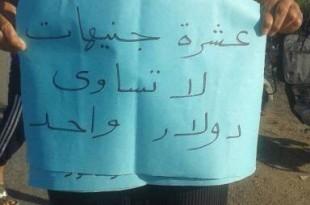 عشرة جنيهات
لا تساوى
دولار واحد